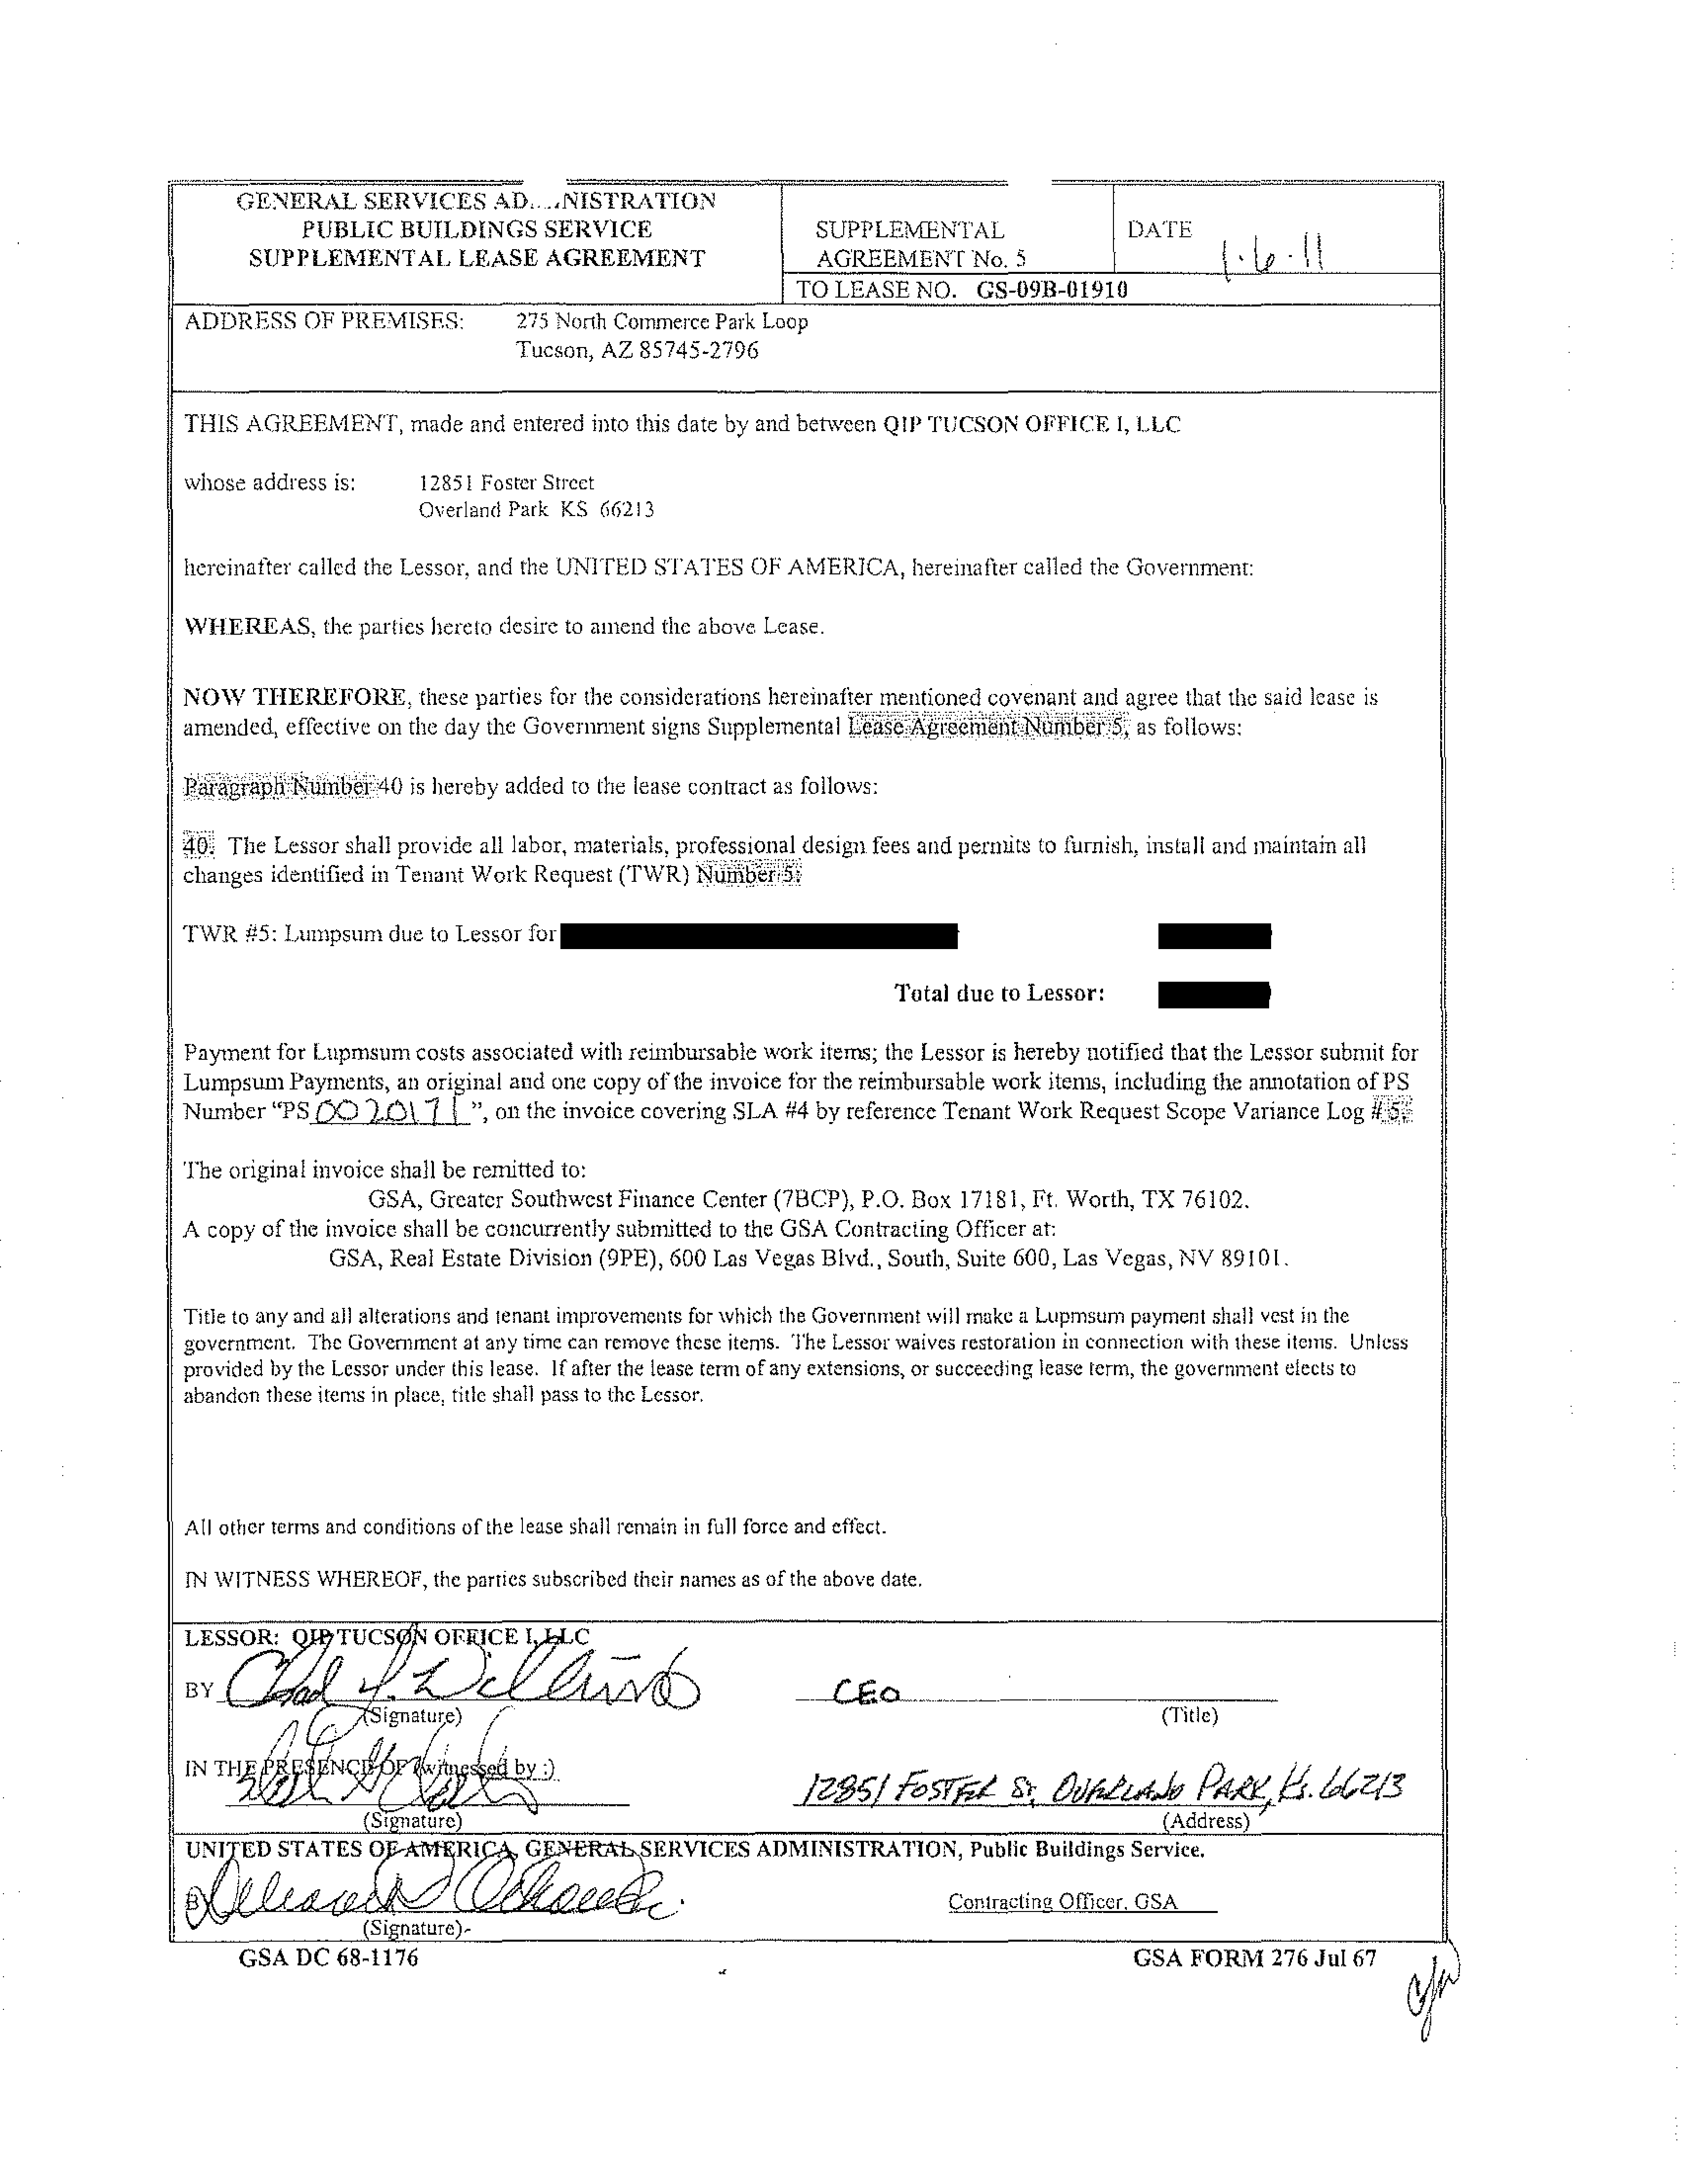 GENERAL SERVICES AD....NISTRATION
PUBLIC BUILDINGS SERVICE
SUPPLEMENTAL LEASE AGREEMENT
SUPPLEMENTAL
AGREEMENT No. 5
DATE
1·6·11
TO LEASE NO. GS-09B-01910
ADDRESS OF PREMISES: 275 North Commerce Park Loop
Tucson, AZ 85745-2796
THIS AGREEMENT, made and entered into this date by and between QIP TUCSON OFFICE I, LLC
whose address is: 12851 Foster Street
Overland Park KS 66213
hereinafter called the Lessor, and the UNITED STATES OF AMERICA, hereinafter called the Government:
WHEREAS, the parties hereto desire to amend the above Lease.
NOW THEREFORE, these parties for the considerations hereinafter mentioned covenant and agree that the said lease is
amended, effective on the day the Government signs Supplemental Lease Agreement Number 5, as follows:
Paragraph Number 40 is hereby added to the lease contract as follows:
40. The Lessor shall provide all labor, materials, professional design fees and permits to furnish, install and maintain all
changes identified in Tenant Work Request (TWR) Number 5:
TWR #5: Lumpsum due to Lessor for
Total due to Lessor:
Payment for Lupmsum costs associated with reimbursable work items; the Lessor is hereby notified that the Lessor submit for
Lumpsum Payments, an original and one copy of the invoice for the reimbursable work items, including the annotation of PS
Number “PS 0020171”, on the invoice covering SLA #4 by reference Tenant Work Request Scope Variance Log # 5.
The original invoice shall be remitted to:
GSA, Greater Southwest Finance Center (7BCP), P.O. Box 17181, Ft. Worth, TX 76102.
A copy of the invoice shall be concurrently submitted to the GSA Contracting Officer at:
GSA, Real Estate Division (9PE), 600 Las Vegas Blvd., South, Suite 600, Las Vegas, NV 89101.
Title to any and all alterations and tenant improvements for which the Government will make a Lupmsum payment shall vest in the
government. The Government at any time can remove these items. The Lessor waives restoration in connection with these items. Unless
provided by the Lessor under this lease. If after the lease term of any extensions, or succeeding lease term, the government elects to
abandon these items in place, title shall pass to the Lessor.
All other terms and conditions of the lease shall remain in full force and effect.
IN WITNESS WHEREOF, the parties subscribed their names as of the above date.
LESSOR: QIP TUCSON OFFICE I, LLC
BY Chad
CEO
(Signature)
(Title)
IN THE PRESENCE OF (witnessed by :)
12851 FOSTER ST, OVERLAND PARK, KS. 66213
(Signature)
(Address)
UNITED STATES OF AMERICA, GENERAL SERVICES ADMINISTRATION, Public Buildings Service.
BY
Contracting Officer, GSA
(Signature)-
GSA DC 68-1176
GSA FORM 276 Jul 67